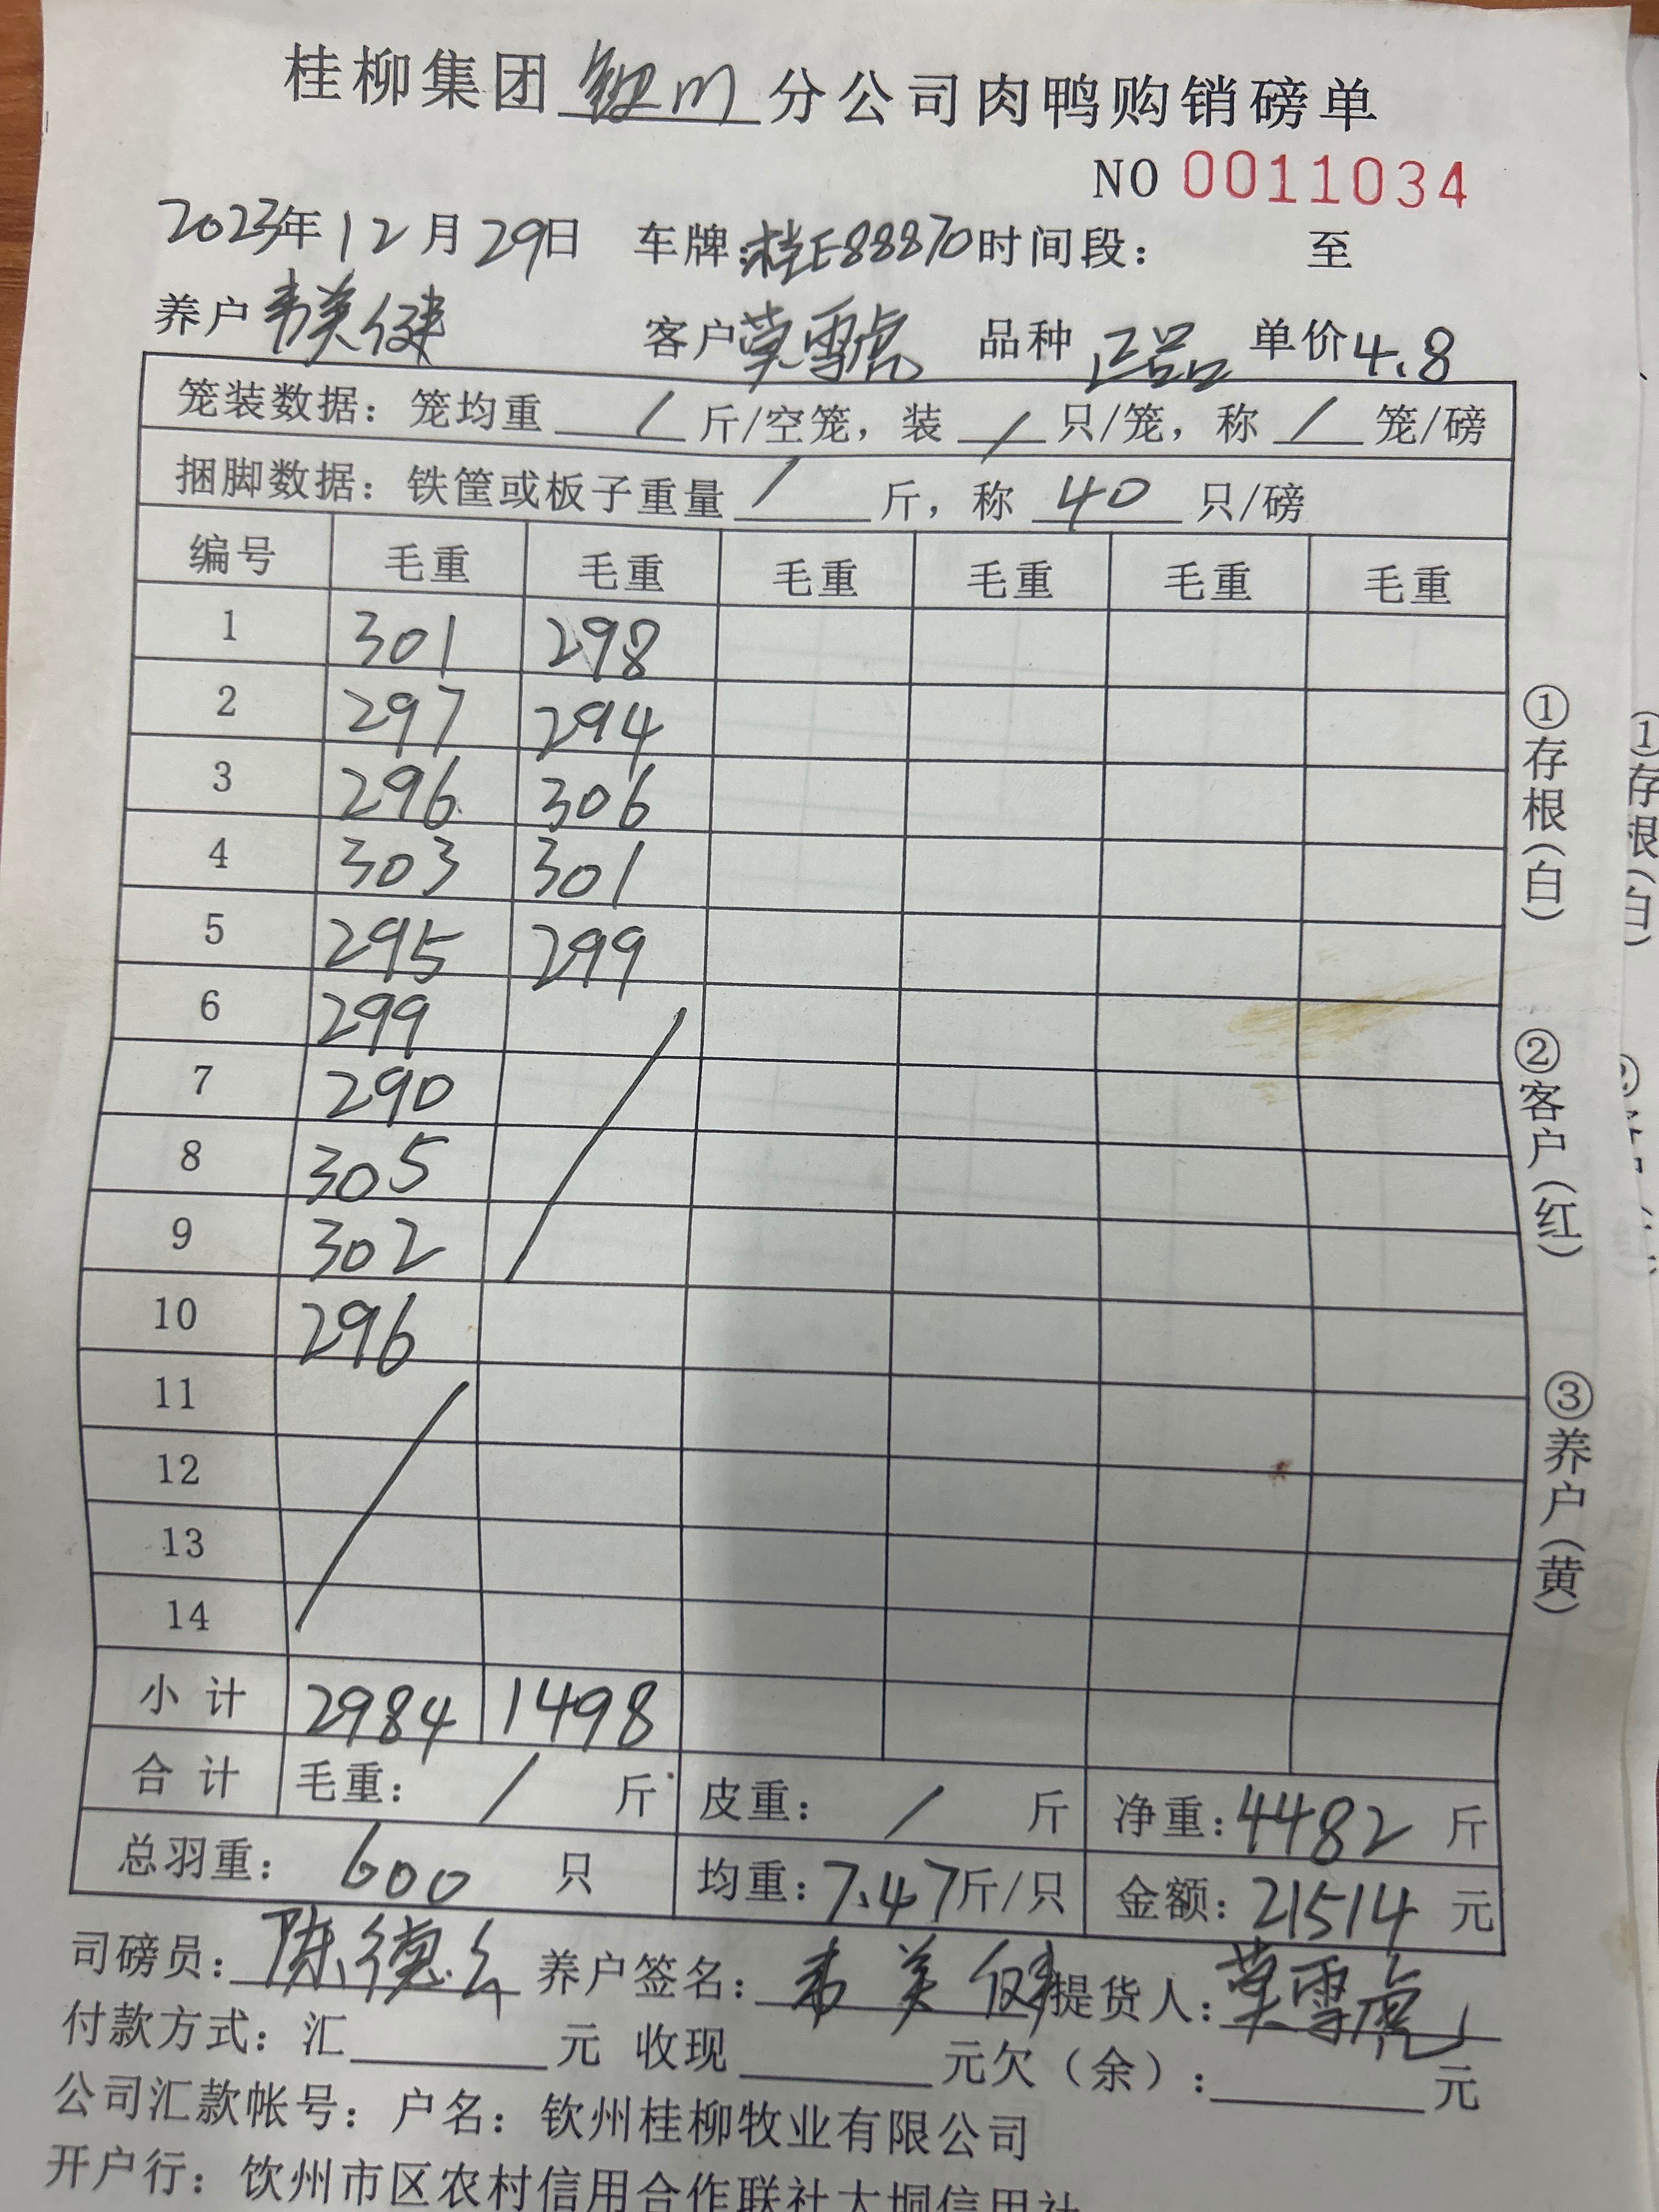 桂柳集团 钦州 分公司肉鸭购销磅单
NO 0011034
2023年12月29日 车牌:桂E88870 时间段: 至
养户 韦美健 客户 莫雪虎 品种 正品 单价4.8
笼装数据: 笼均重 / 斤/空笼, 装 / 只/笼, 称 / 笼/磅
捆脚数据: 铁筐或板子重量 / 斤, 称 40 只/磅
编号 毛重 毛重 毛重 毛重 毛重 毛重
1 301 298
2 297 294
3 296 306
4 303 301
5 295 299
6 299
7 290
8 305
9 302
10 296
11
12
13
14
小计 2984 1498
合计 毛重: / 斤 皮重: / 斤 净重:4482 斤
总羽重: 600 只 均重:7.47斤/只 金额:21514 元
司磅员: 陈德 养户签名: 韦美健 提货人: 莫雪虎
付款方式: 汇 元 收现 元欠(余): 元
公司汇款帐号: 户名: 钦州桂柳牧业有限公司
开户行: 钦州市区农村信用合作联社大垌信用社
①存根(白)
②客户(红)
③养户(黄)
①存根(白)